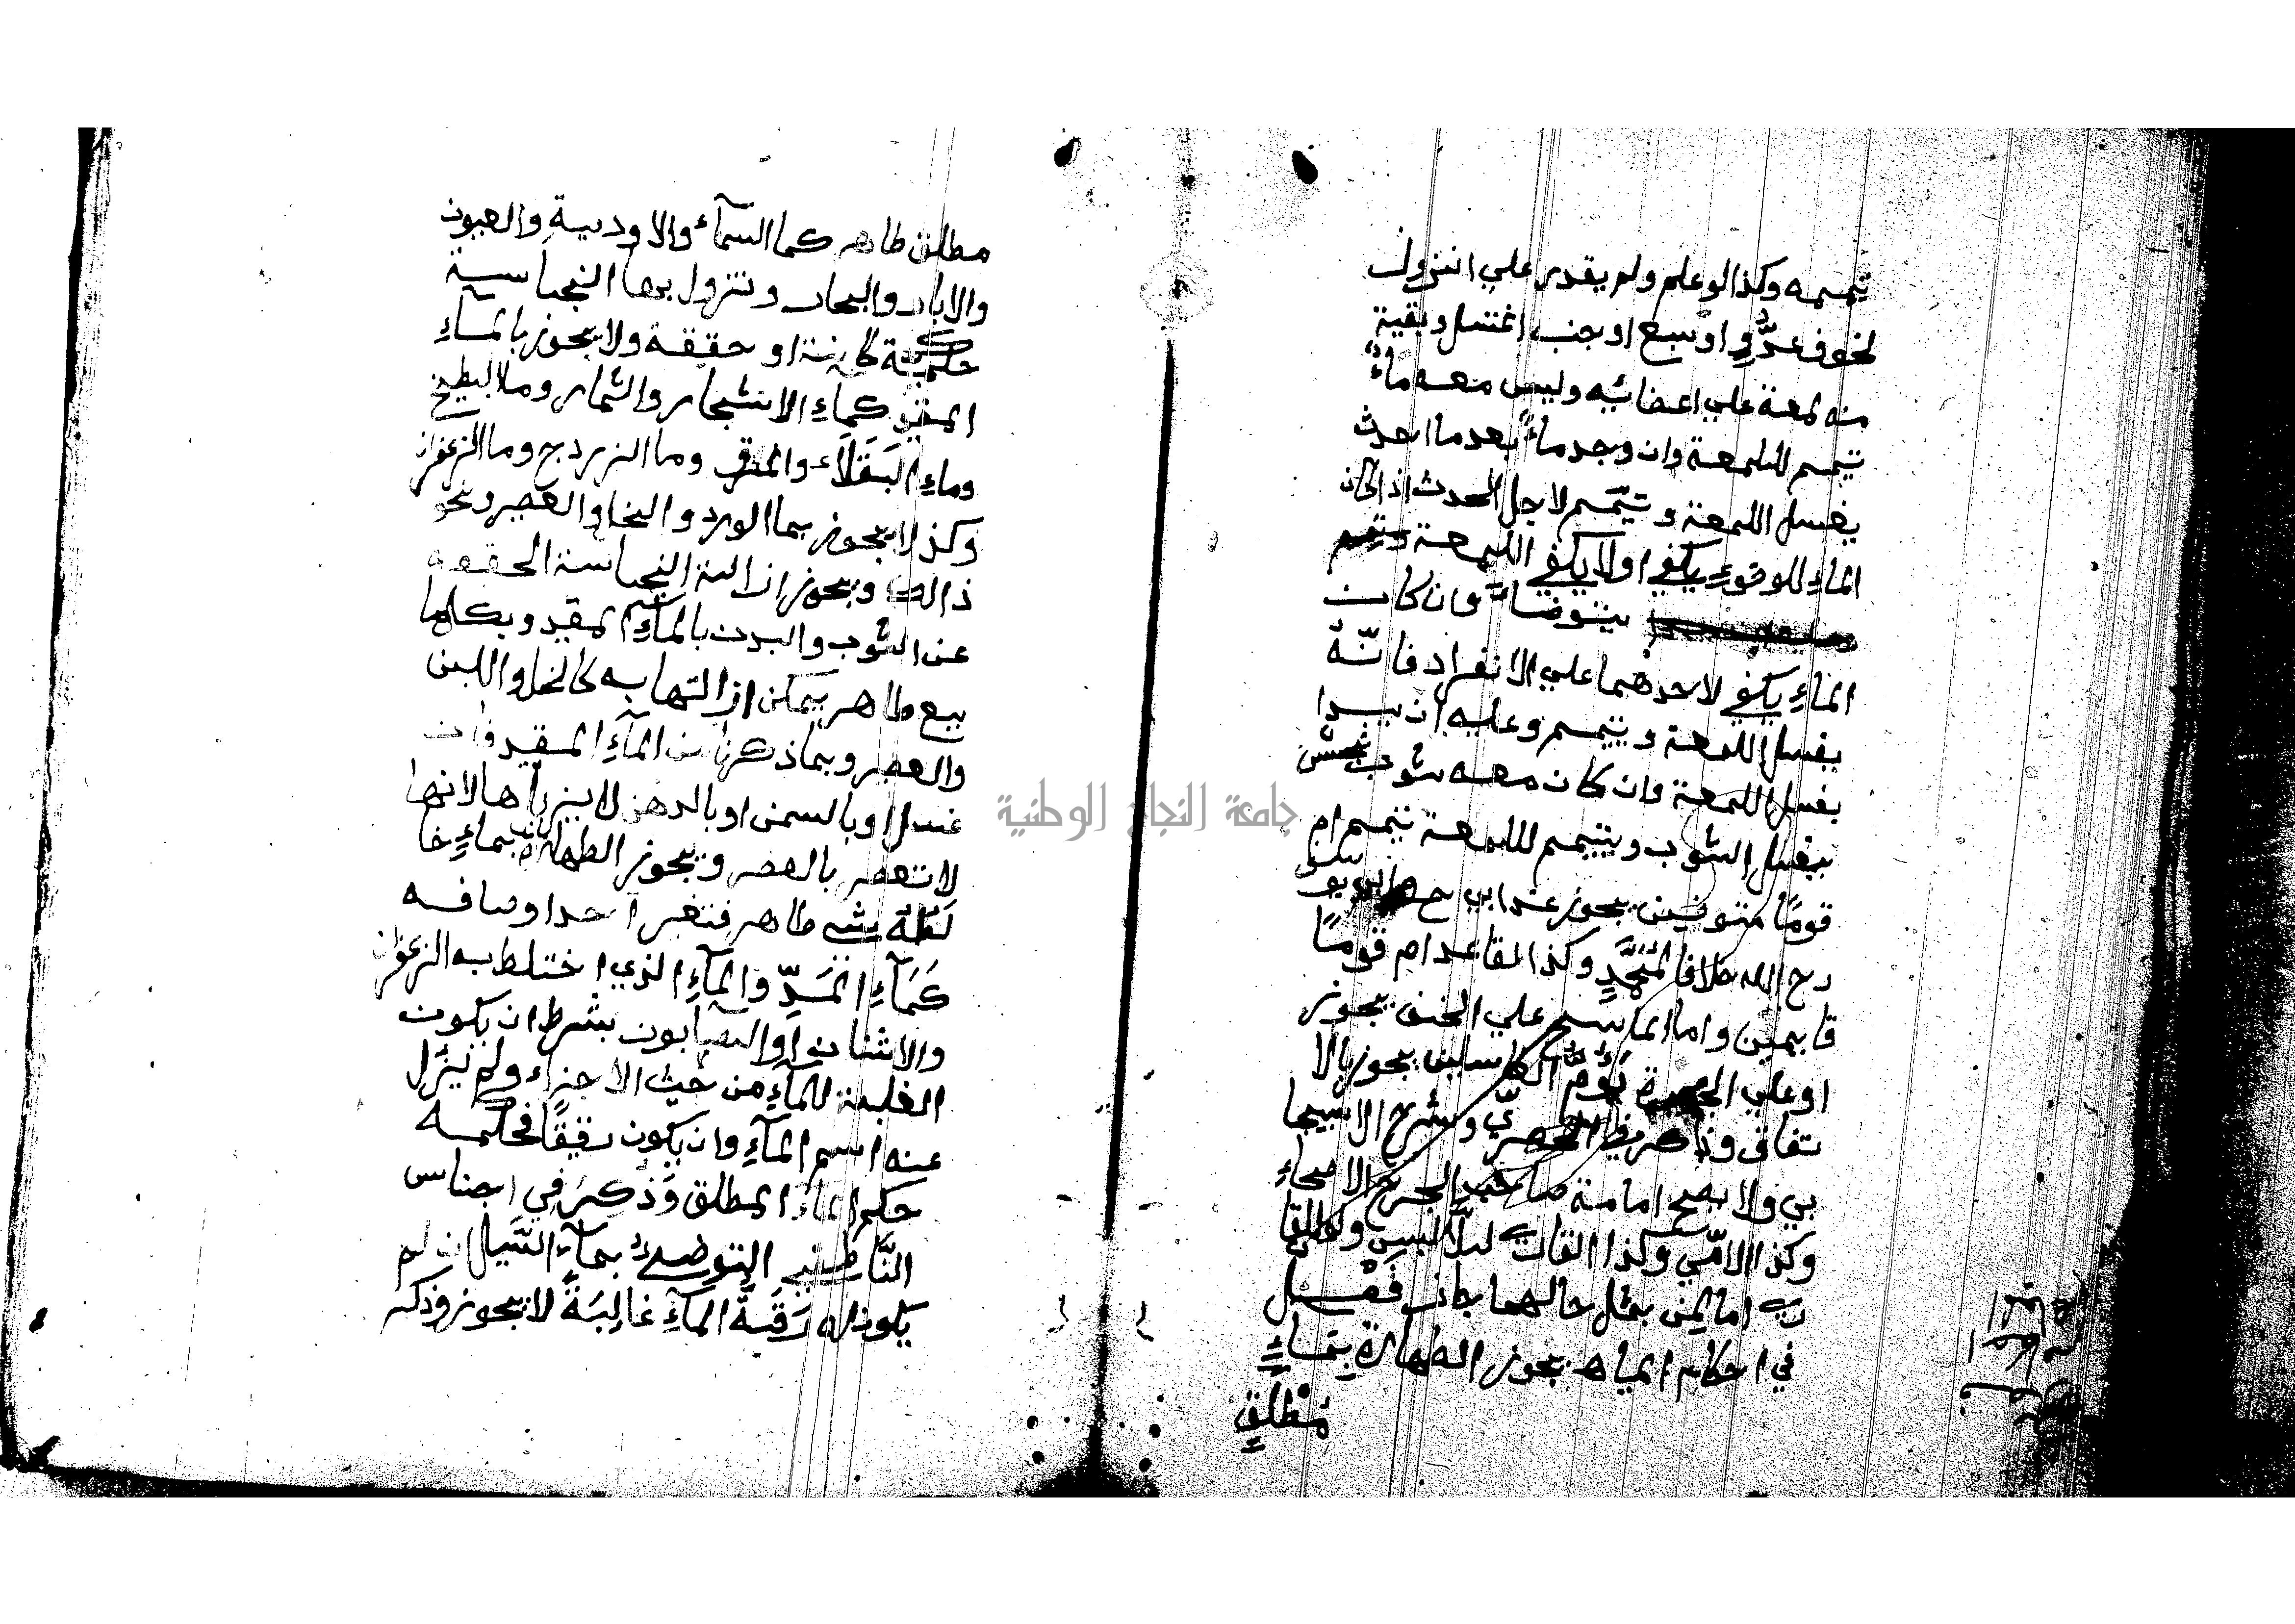 تيممه وكذا لو علم ولم يقدر علي النزول
لخوف عدُوٍّ او سبع او جنب اغتسل وبقية
منه لمعة علي اعضائه وليس معه ماءٌ
تيمم لللمعة وان وجد ماءً بعد ما احدث
يغسل اللمعة وتيمّم لاجل الحدث اذا كان
الماءِ للوضوءِ يكفي او لا يكفي اللمعة
يتوضاءَ وان كان
الماءِ يكفي لاحدهما علي الانفراد فانّهُ
يغسل اللمعة ويتيمم وعليه ان يبدا
بغسل اللمعة وان كان معه ثوب نجس
يغسل الثوب ويتيمم لللمعة تيمم ام
قومًا متوضين يجوز عند ابي ح وابي يو
رح الله خلافا لمُحَمَّدٍ وكذا المقاعد ام قومًا
قايمين واما الماسح علي الخف يجوز
او علي الجبيرة يَؤُمُّ الغاسلين يجوز بالا
تفاق وذكر في المحصريّ وشرح الاسبيجا
بي ولا يصح امامة صاحب الجرح الاصحاءِ
وكذا الامّي وكذا القات
اما لمن بمثل حالهما جاز فصل
في احكام المياه يجوز الطهارة بِمَاءٍ
مُطْلَقٍ
مطلق طاهر كما السمآء والاودية والعيون
والابار والبحار وتزول بها النجاسة
حكمية كانت او حقيقة ولا يجوز بالمآءِ
المقيد كماءِ الاشجار والثمار وما البطيخ
وماءِ البَقَلَاء والمرق وما الزردج وما الزعفران
وكذ لا يجوز بما الورد والخل والعصير ونحو
ذالك ويجوز ازالة النجاسة الحقيقة
عن الثوب والبدن بالمآءِ المقيد وبكل ما
يع طاهر يمكن ازالتها به كالخل واللبن
والعصير وبما ذكرنا من المآءِ المقيد فان
غسل او بالسمن او بالدهن لا يزيلها لانها
لا تنعصر بالعصر ويجوز الطهارة بماءٍ خا
لَطَهُ شي طاهر فتغير احد اوصافه
كَمَآءِ المَدِّ والمآءِ الذي اختلط به الزعفران
والاشنان والصابون بشرط ان يكون
الغلبة للمآءِ من حيث الاجزاء ولم يَزُل
عنه اسم المآءِ وان يكون رقيقًا فحكمه
حكم الماء المطلق وَذُكِرَ في اجناس
النَّاطفي التوضي بمآءِ السَّيل ان لم
يكون له رَقَةُ المآءِ غالِبَةً لا يجوز وذكر